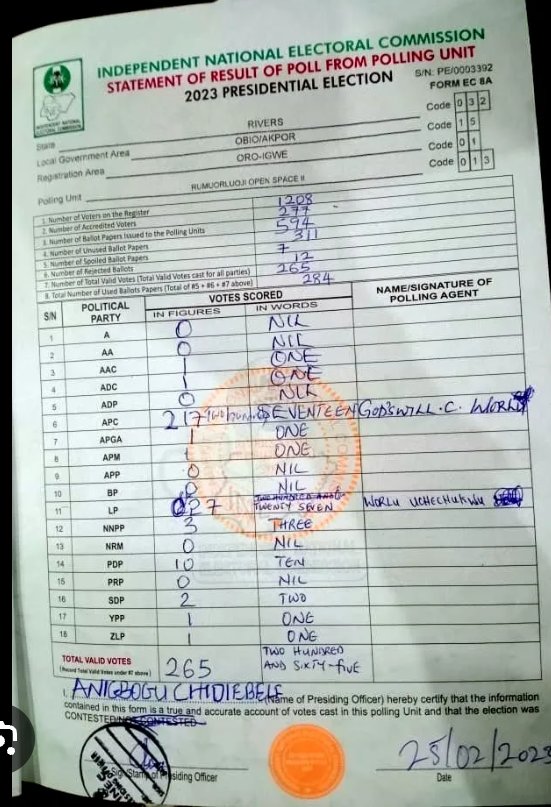 INDEPENDENT NATIONAL ELECTORAL COMMISSION
STATEMENT OF RESULT OF POLL FROM POLLING UNIT
2023 PRESIDENTIAL ELECTION
S/N: PE/0003392
FORM EC 8A
State RIVERS Code 0 3 2
Local Government Area OBIO/AKPOR Code 1 5
Registration Area ORO-IGWE Code 0 1
Polling Unit RUMUORLUOJI OPEN SPACE II Code 0 1 3
1. Number of Voters on the Register 1208
2. Number of Accredited Voters 277
3. Number of Ballot Papers Issued to the Polling Units 594
4. Number of Unused Ballot Papers 311
5. Number of Spoiled Ballot Papers 7
6. Number of Rejected Ballots 12
7. Number of Total Valid Votes (Total Valid Votes cast for all parties) 265
8. Total Number of Used Ballots Papers (Total of #5 + #6 + #7 above) 284
S/N POLITICAL PARTY VOTES SCORED NAME/SIGNATURE OF POLLING AGENT
IN FIGURES IN WORDS
1 A 0 NIL
2 AA 0 NIL
3 AAC 1 ONE
4 ADC 1 ONE
5 ADP 0 NIL
6 APC 217 TWO HUNDRED SEVENTEEN GODSWILL. C. WORLU
7 APGA 1 ONE
8 APM 1 ONE
9 APP 0 NIL
10 BP 0 NIL
11 LP 027 TWO HUNDRED AND TWENTY SEVEN WORLU UCHECHUKWU
12 NNPP 3 THREE
13 NRM 0 NIL
14 PDP 10 TEN
15 PRP 0 NIL
16 SDP 2 TWO
17 YPP 1 ONE
18 ZLP 1 ONE
TOTAL VALID VOTES 265 TWO HUNDRED
(Record Total Valid Votes under #7 above) AND SIXTY-FIVE
I, ANIGBOGU CHIDIEBELE (Name of Presiding Officer) hereby certify that the information
contained in this form is a true and accurate account of votes cast in this polling Unit and that the election was
CONTESTED/NOT CONTESTED
Sign/Stamp of Presiding Officer
25/02/2023
Date